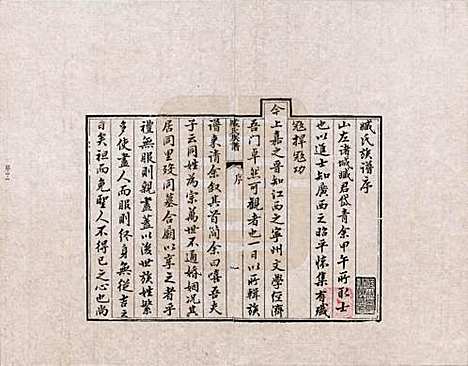 臧氏族譜序
山左諸城臧君岱青余甲午所取士
也以進士知廣西之昭平懷集有殲
寇捍寇功
今上嘉之晉知江西之寧州文學經濟
吾門卓然可觀者也一日以所輯族
臧氏族譜
序
一
譜來請余叙其首簡余曰嘻吾夫
子云同姓為宗萬世不通婚姻况其
居同里歿同墓合廟以享之者乎
禮無服則親盡蓋以後世族姓繁
多使盡人而服則終身無從吉之
日矣袒而免聖人不得已之心也尚